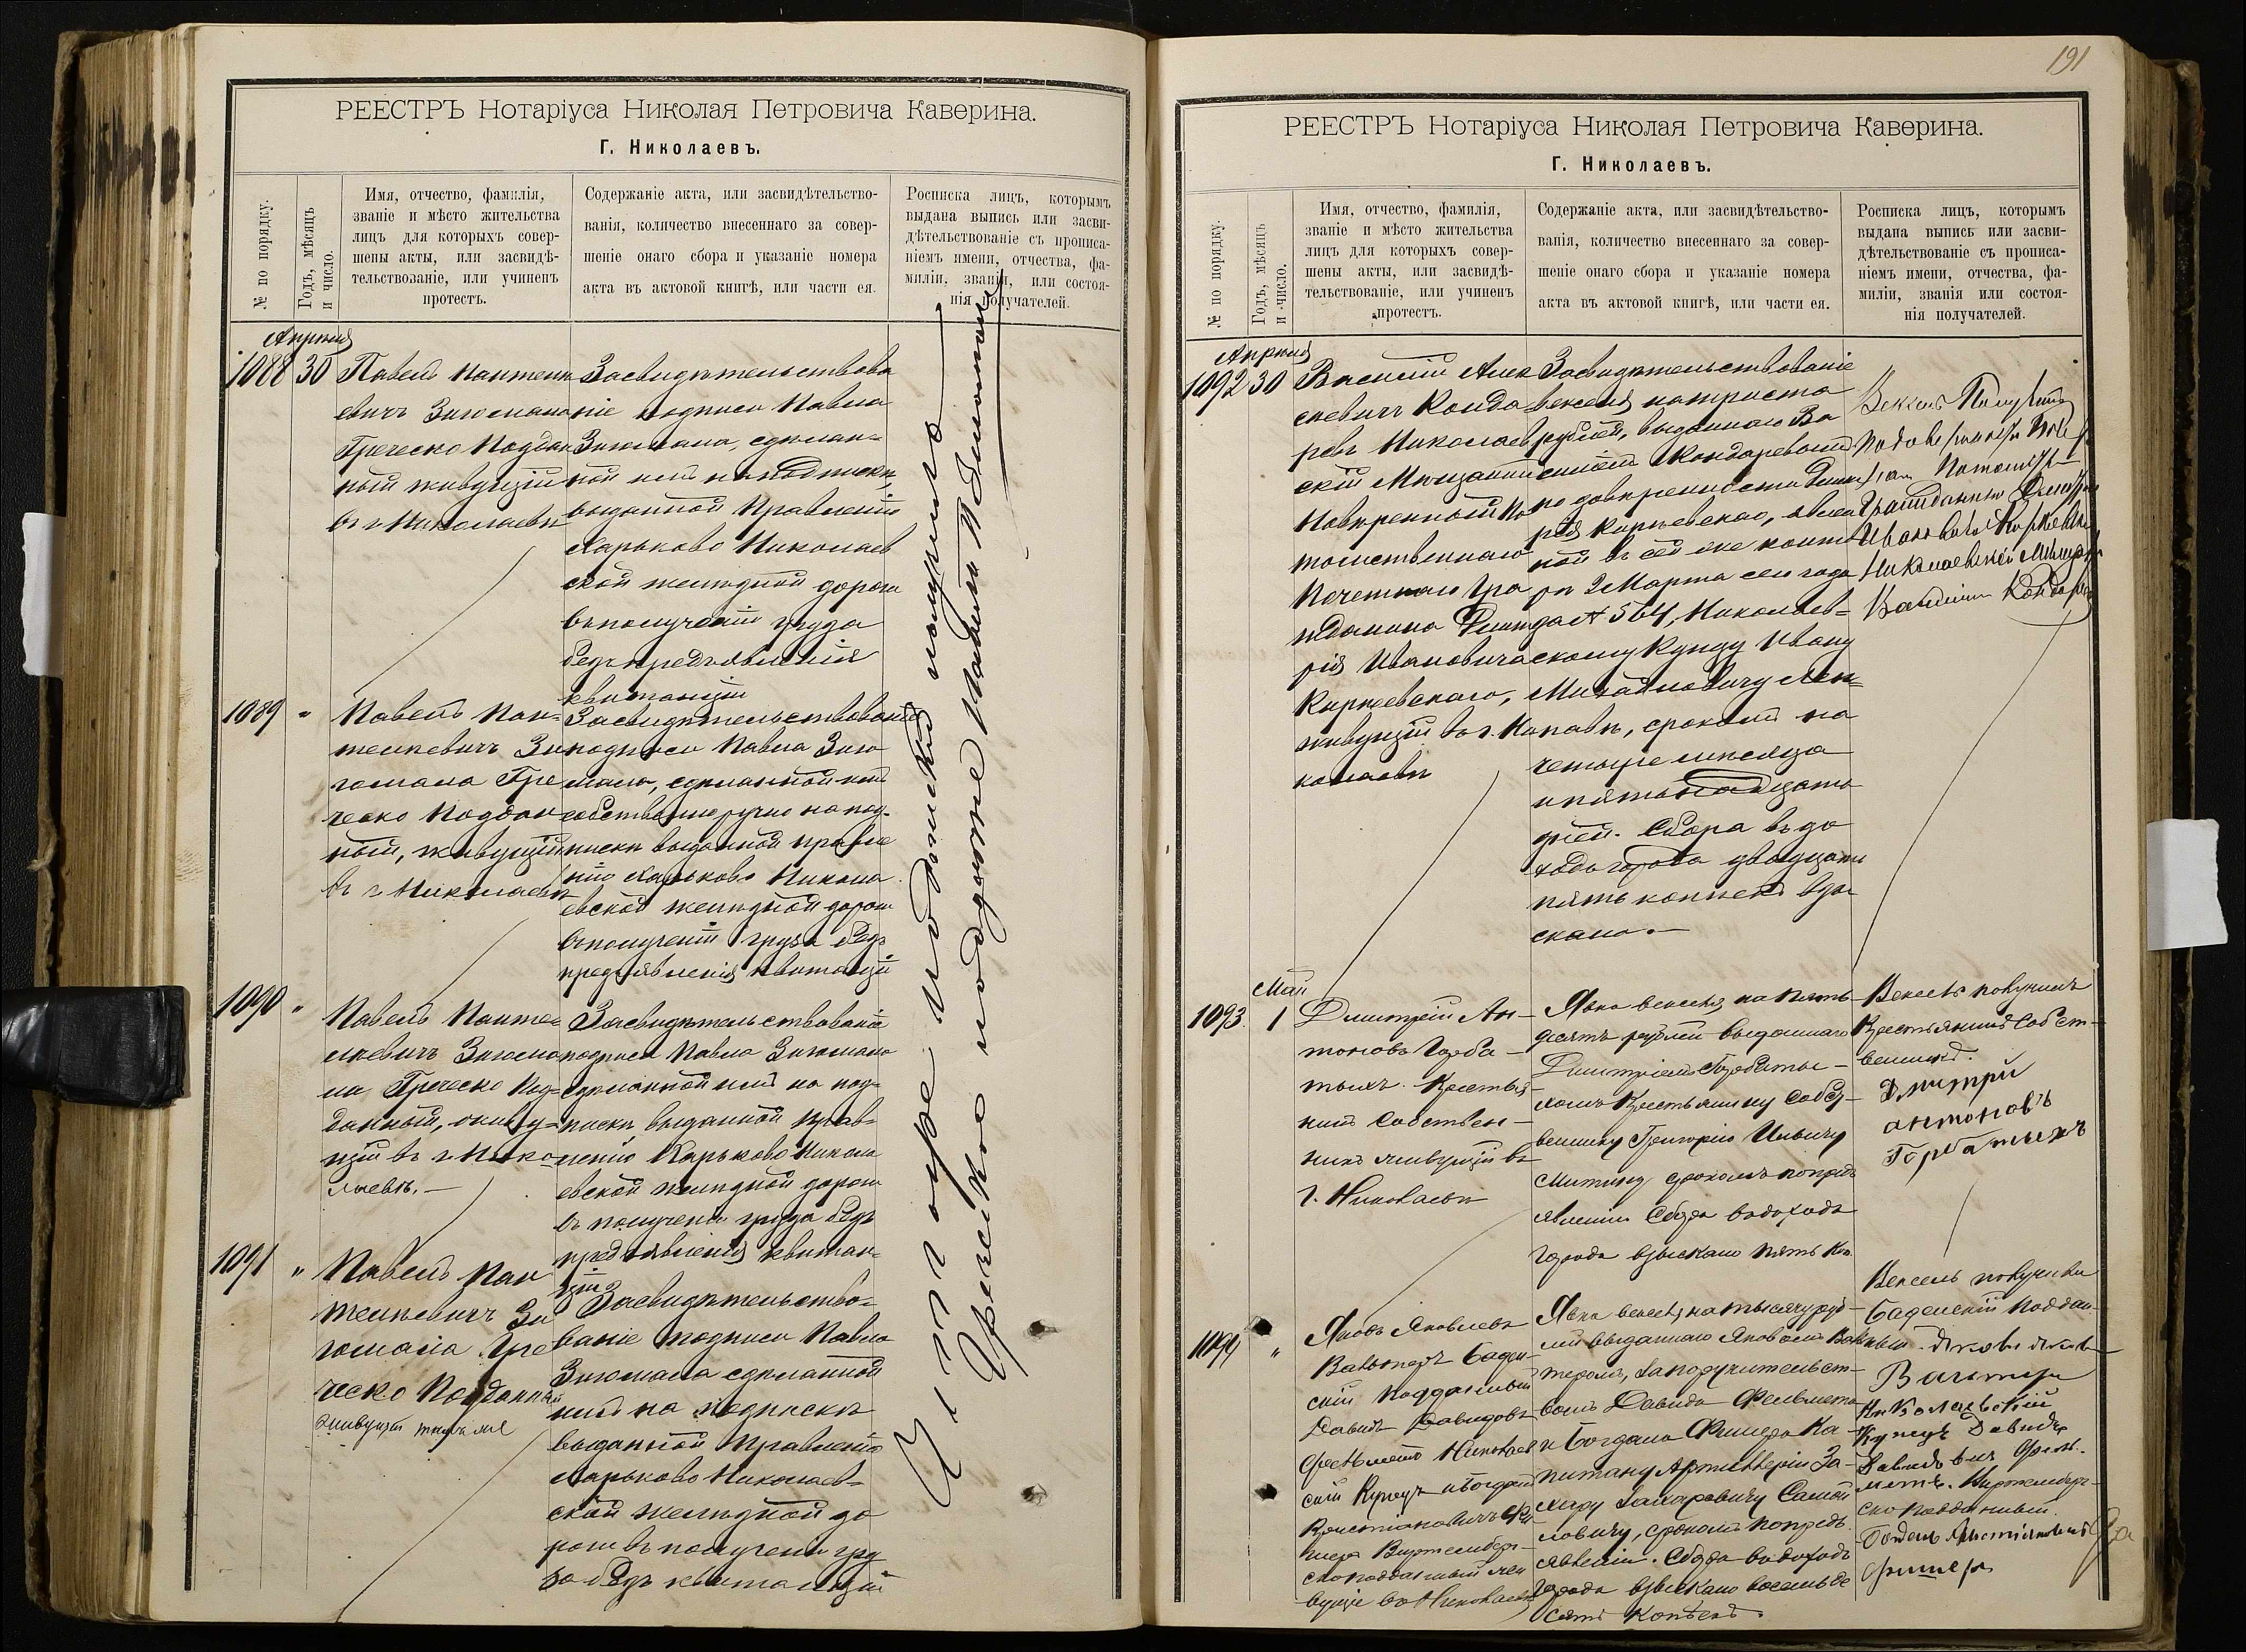 РЕЕСТРЪ Нотаріуса Николая Петровича Каверина.
Г. Николаевъ.
№ по порядку.
Годъ, мѣсяцъ
и число.
Имя, отчество, фамилія,
званіе и мѣсто жительства
лицъ для которыхъ совер-
шены акты, или засвидѣ-
тельствованіе, или учиненъ
протестъ.
Содержаніе акта, или засвидѣтельство-
ванія, количество внесеннаго за совер-
шеніе онаго сбора и указаніе номера
акта въ актовой книгѣ, или части ея.
Росписка лицъ, которымъ
выдана выпись или засви-
дѣтельствованіе съ прописа-
ніемъ имени, отчества, фа-
миліи, званія, или состоя-
нія получателей.
Апрѣля
1088 30
Павелъ Пантелѣ
евичъ
Греческо Поддан
ный живущій
въ г Николаевѣ
Засвидѣтельствова
ніе подписи Павла
сдѣлан=
ной имъ на подпискѣ,
выданной Правленію
Харьково Николаев
ской желѣзной дороги
въ полученіи груза
безъ предъявленія
квитанціи
1089 "
Павелъ Пан=
телѣевичъ Зи
гомала Гре
ческо Поддан
ный, живущій
въ г Николаевѣ
Засвидѣтельствованіе
подписи Павла Зиго
мала, сдѣланной имъ
собственноручно на под-
пискѣ выданной правле
нію Харьково Никола
евской желѣзной дороги
въ полученіи груза безъ
предъявленія квитанціи
1090 "
Павелъ Панте=
лѣевичъ Зигома
ла Греческо Под=
данный, живу=
щій въ г. Нико=
лаевѣ.—
Засвидѣтельствованіе
подписи Павла Зигомала
сдѣланной имъ на под=
пискѣ выданной Прав=
ленію Харьково Никола
евской желѣзной дороги
въ полученіи груза безъ
предъявленія квитан=
ціи
1091 "
Павелъ Пан
телѣевичъ Зи
гомала Гре
ческо Подданный
живущій тамъ же
Засвидѣтельство=
ваніе подписи Павла
Зигомала сдѣланной
имъ на подпискѣ
выданной Правленію
Харьково Николаев=
ской желѣзной до
роги въ полученіи гру
за безъ квитанціи
подписки получилъ
191
РЕЕСТРЪ Нотаріуса Николая Петровича Каверина.
Г. Николаевъ.
№ по порядку.
Годъ, мѣсяцъ
и число.
Имя, отчество, фамилія,
званіе и мѣсто жительства
лицъ для которыхъ совер-
шены акты, или засвидѣ-
тельствованіе, или учиненъ
протестъ.
Содержаніе акта, или засвидѣтельство-
ванія, количество внесеннаго за совер-
шеніе онаго сбора и указаніе номера
акта въ актовой книгѣ, или части ея.
Росписка лицъ, которымъ
выдана выпись или засви-
дѣтельствованіе съ прописа-
ніемъ имени, отчества, фа-
миліи, званія или состоя-
нія получателей.
Апрѣля
1092 30
Василій Алек
сѣевичъ Конда
ревъ Николаев
скій Мѣщанинъ
Повѣренный По
томственнаго
Почетнаго Гра
жданина Дмит
рія Ивановича
Киріевскаго,
живущій въ г. Ни
колаевѣ
Засвидѣтельствованіе
векселя на триста
рублей, выданнаго Ва
силіемъ Кондаревымъ
по довѣренности Дмит
рія Киріевскаго, явлен
ной въ сей же конто
рѣ 2 Марта сего года
№ 564, Николаев=
скому Купцу Ивану
Михайловичу
срокомъ на
четыре мѣсяца
и пятнадцать
дней. Сбора въ до
ходъ города двадцать
пять копѣекъ взы
скано.—
Вексель Получилъ
По довѣренности
Потомств
Гражданина Дмитрія
Ивановича Киріевскаго
Николаевскій Мѣщанинъ
Василій Кондаревъ
Мая
1093 1
Дмитрій Ан-
тоновъ Горба-
тыхъ Крестья-
нинъ Собствен-
никъ живущій въ
г. Николаевѣ
Явка векселя на пять-
десятъ рублей выданнаго
Дмитріемъ Горбаты-
хомъ Крестьянину Собст-
веннику Григорію Ильичу
Митину срокомъ по предъ
явленіи Сбора въ доходъ
города взыскано пять коп.
Вексель получилъ
Крестьянинъ Собст-
венникъ.
Дмитрій
антоновъ
Горбатыхъ
1094 "
Яковъ Яковлевъ
Вальтеръ Баден-
скій подданный
Давидъ Давидовъ
Николаев
скій Купецъ и Богданъ
Христіановичъ Фи
шеръ Виртемберг-
скоподданный жи
вущіе въ Николаевѣ
Явка векселя на тысячу руб-
лей выданнаго Яковомъ Валь
теромъ, за поручительст-
вомъ Давида
и Богдана Фишера Ка-
питану Артиллеріи За-
хару Захаровичу Самой
ловичу, срокомъ по предъ
явленіи. Сбора въ доходъ
города взыскано восемьде
сятъ копѣекъ.
Вексель получили
Баденскій поддан-
ный Яковъ Яковл
Вальтеръ
Николаевскій
Купецъ Давидъ
Виртемберг-
скоподданный
Богданъ Христіановичъ
Фишеръ